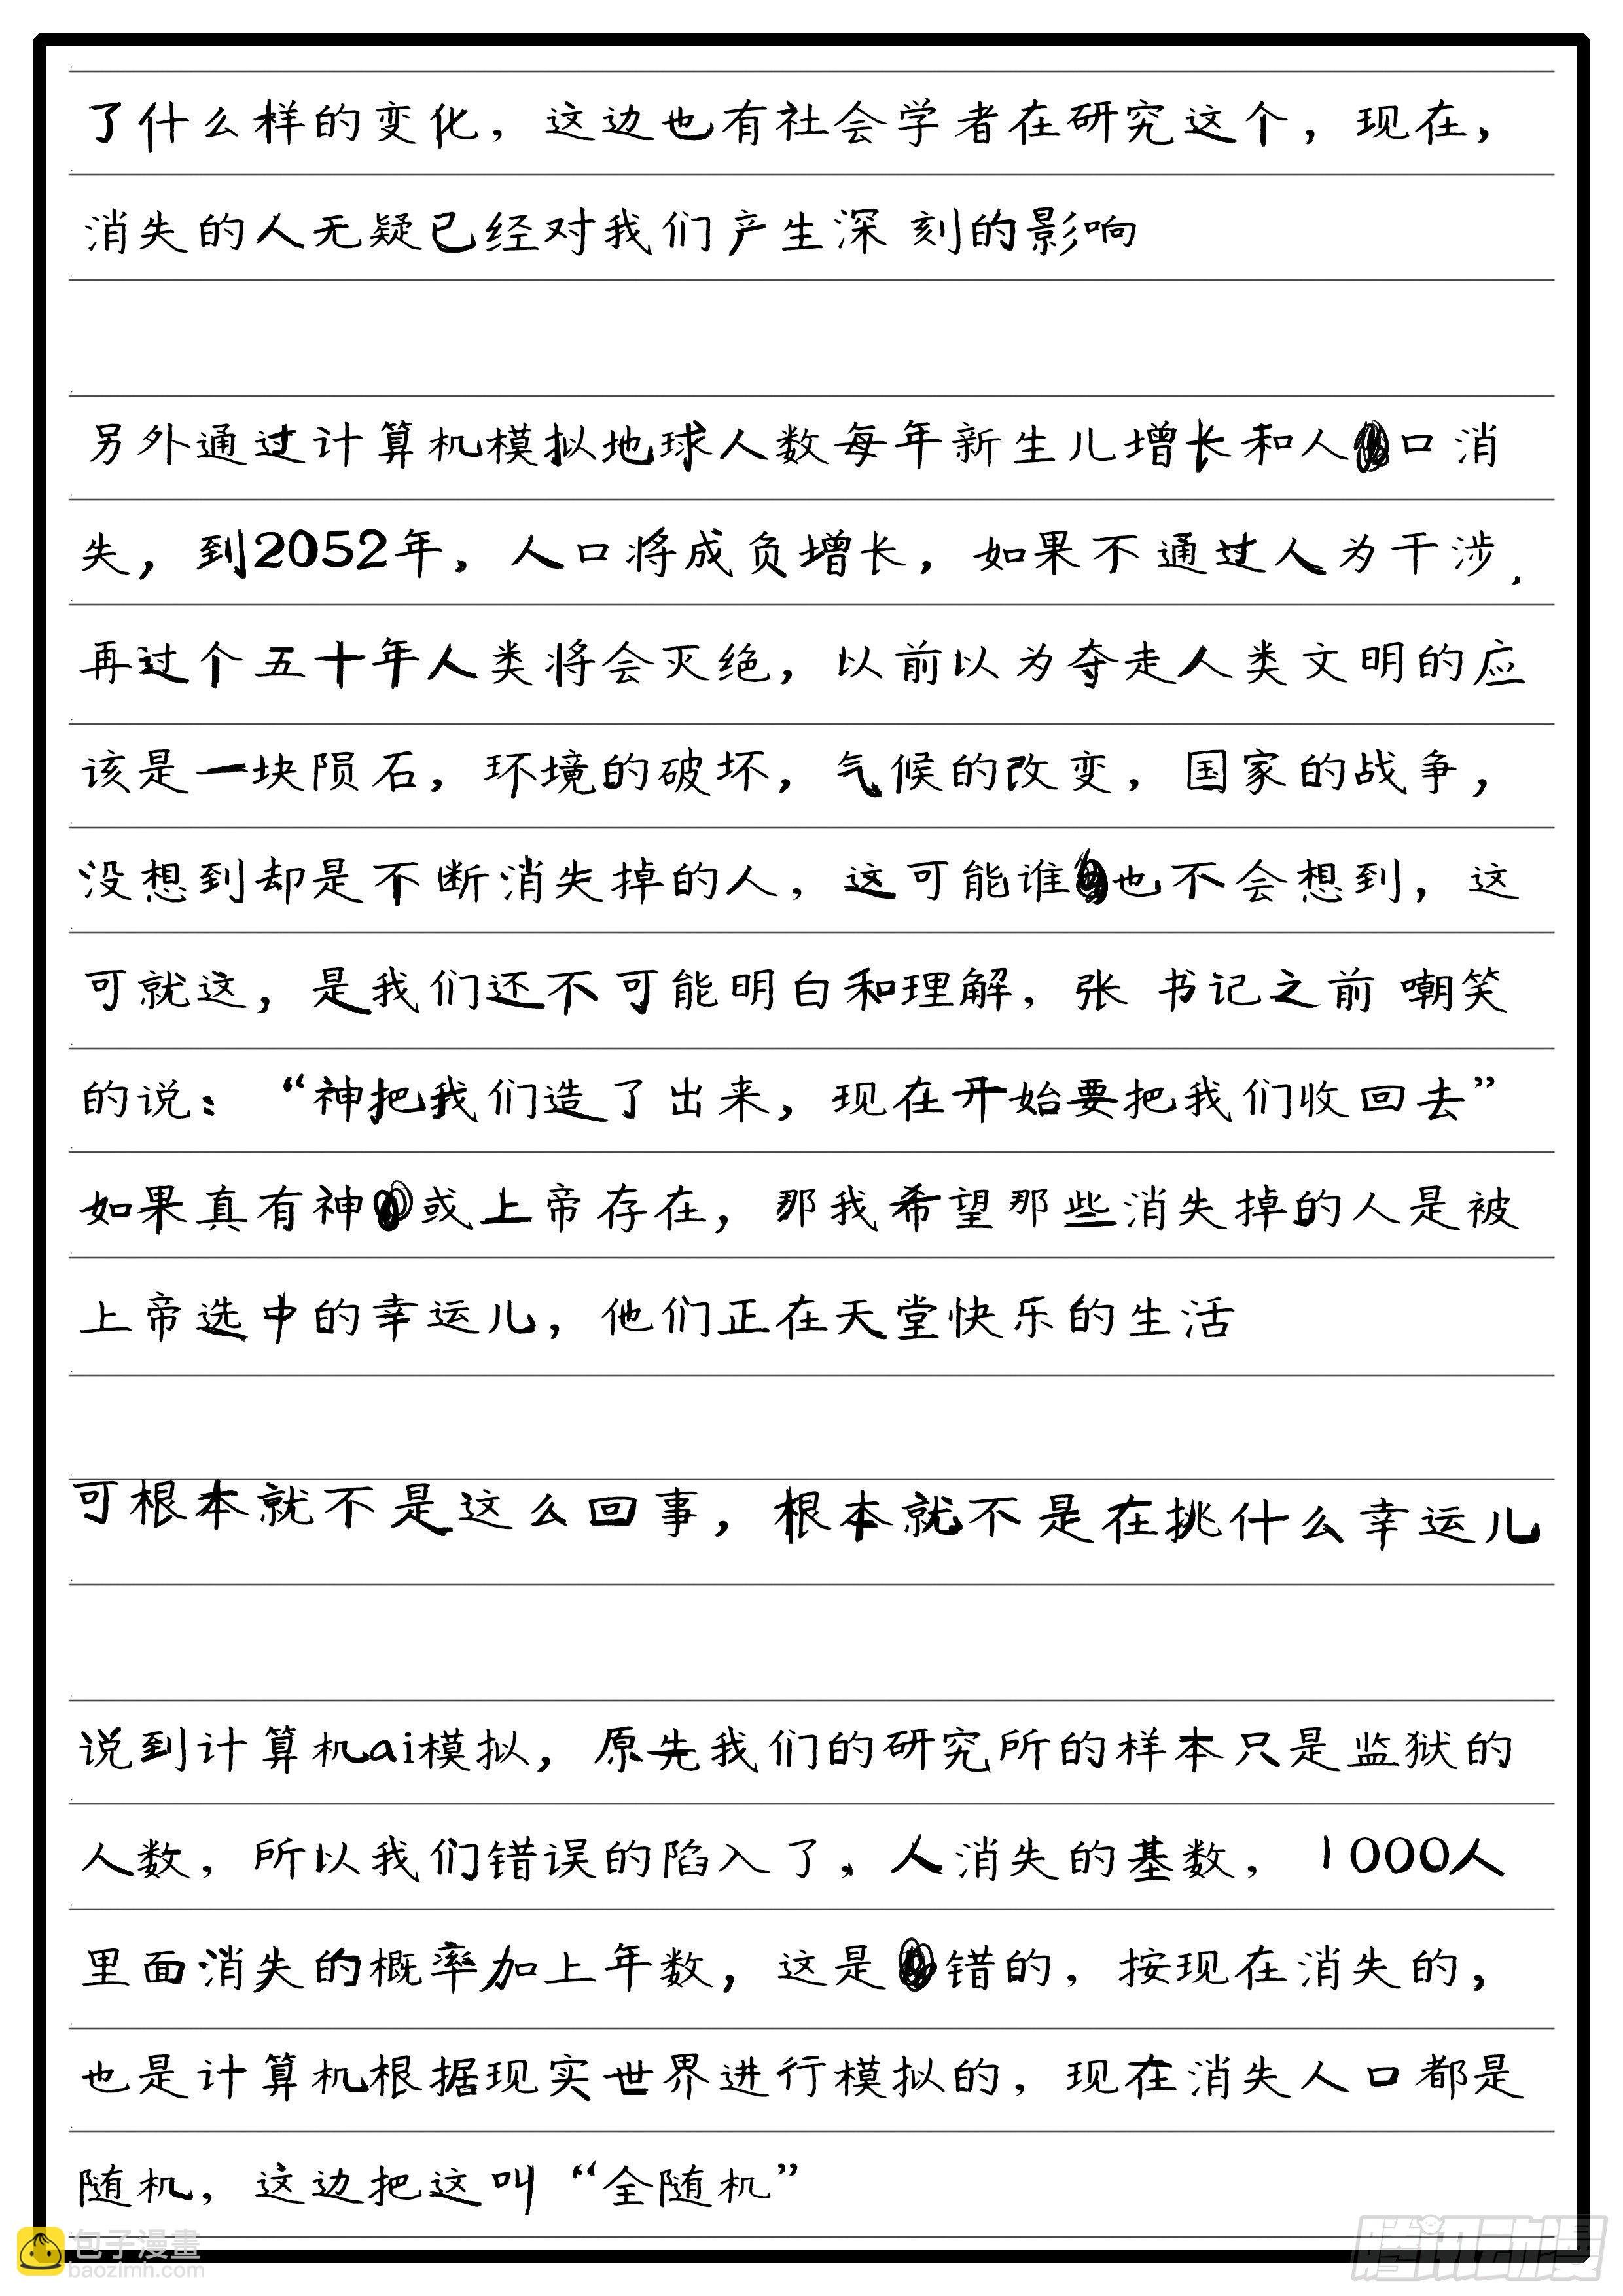 了什么样的变化，这边也有社会学者在研究这个，现在，
消失的人无疑已经对我们产生深刻的影响
另外通过计算机模拟地球人数每年新生儿增长和人口消
失，到2052年，人口将成负增长，如果不通过人为干涉，
再过个五十年人类将会灭绝，以前以为夺走人类文明的应
该是一块陨石，环境的破坏，气候的改变，国家的战争，
没想到却是不断消失掉的人，这可能谁也不会想到，这
可就这，是我们还不可能明白和理解，张书记之前嘲笑
的说：“神把我们造了出来，现在开始要把我们收回去”
如果真有神或上帝存在，那我希望那些消失掉的人是被
上帝选中的幸运儿，他们正在天堂快乐的生活
可根本就不是这么回事，根本就不是在挑什么幸运儿
说到计算机ai模拟，原先我们的研究所的样本只是监狱的
人数，所以我们错误的陷入了、人消失的基数，1000人
里面消失的概率加上年数，这是错的，按现在消失的，
也是计算机根据现实世界进行模拟的，现在消失人口都是
随机，这边把这叫“全随机”
包子漫畫
baozimh.com
腾讯动漫